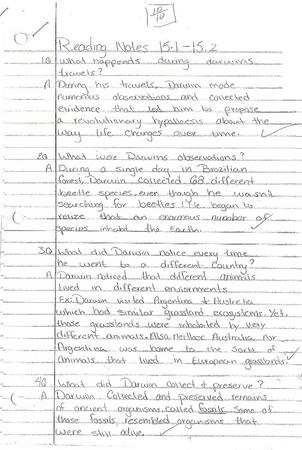 10/10
Reading Notes 15.1-15.2
1Q What happends during darwins
travels?
A During his travels, Darwin made
numerous observations and collected
evidence that led him to propose
a revolutionary hypothesis about the
way life changes over time.
2Q What were Darwins observations?
A During a single day in Brazilian
forest, Darwin collected 68 different
beetle species even though he wasn't
searching for beetles! He began to
relize that an enormous number of
species inhabit the Earth.
3Q What did Darwin notice every time
he went to a different country?
A Darwin noticed that different animals
lived in different environments.
Ex: Darwin visited Argentina & Australia
which had similar grassland ecosystems. Yet,
those grasslands were inhabited by very
different animals. Also, neither Australia nor
Argentina was home to the sorts of
animals that lived in European grasslands.
4Q What did Darwin collect & preserve?
A Darwin collected and preserved remains
of ancient organisms called fossils. Some of
those fossils resembled organisms that
were still alive.